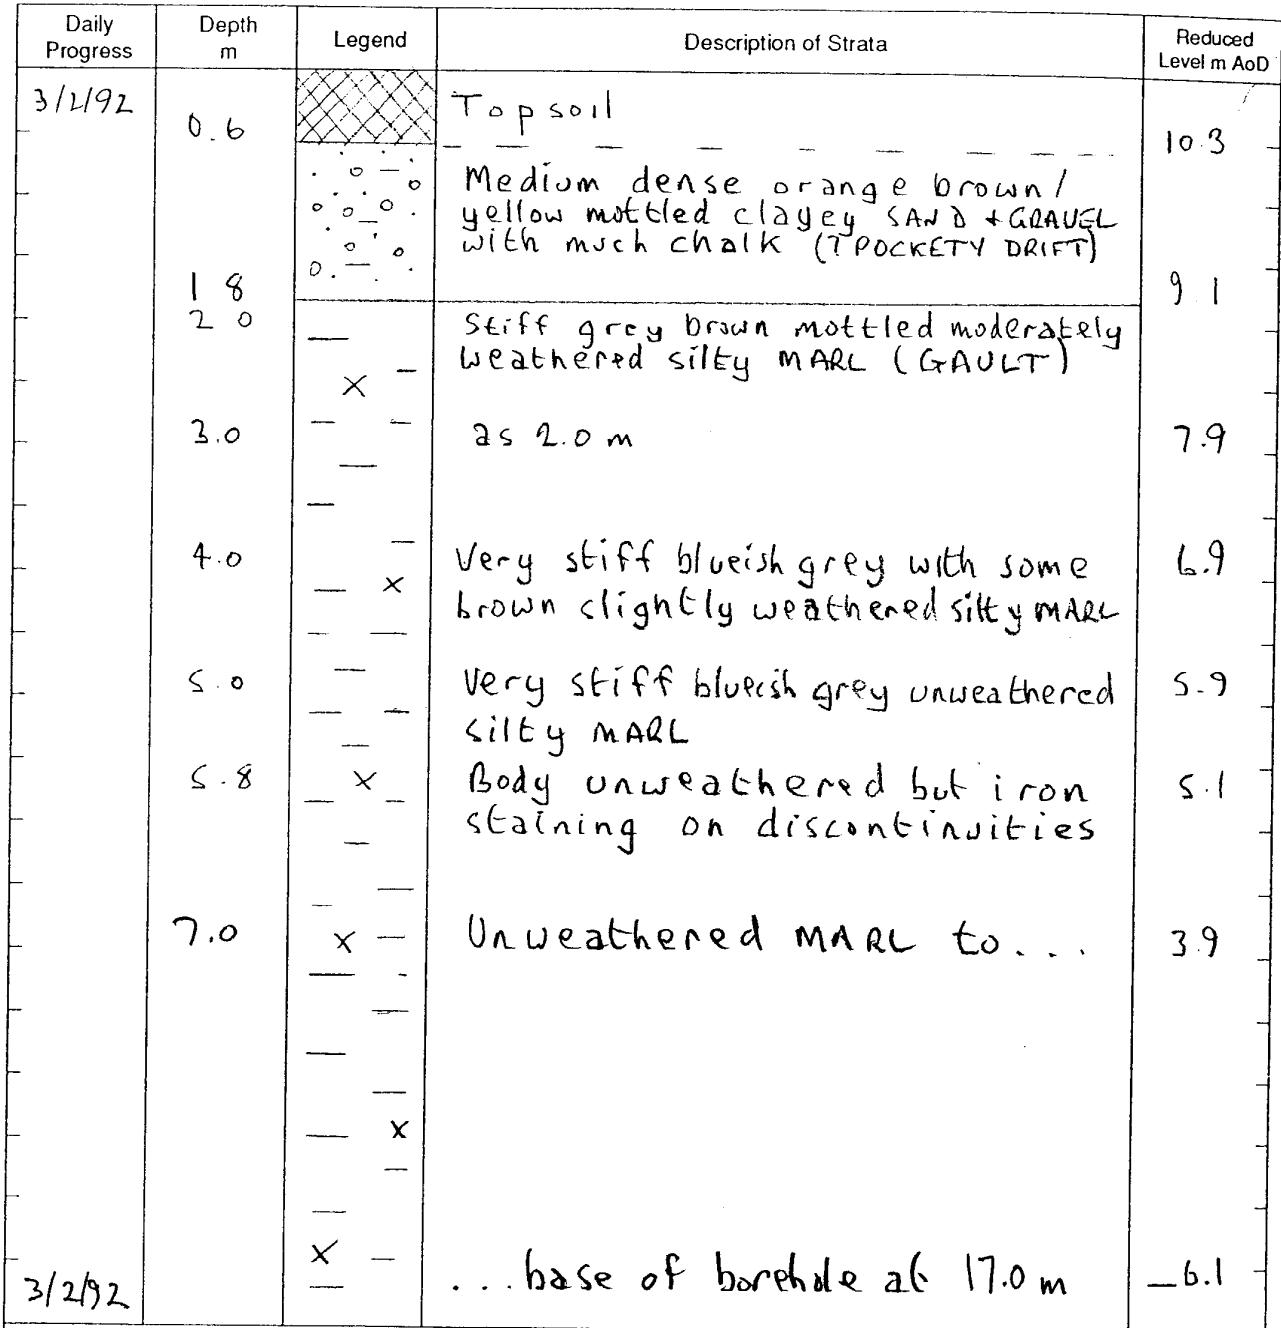 Daily Progress | Depth m | Legend | Description of Strata | Reduced Level m AoD
3/2/92 | 0.6 | Topsoil | 10.3
Medium dense orange brown/
yellow mottled clayey SAND + GRAVEL
with much chalk (? POCKETY DRIFT)
1 8 | 9 1
2 0 | Stiff grey brown mottled moderately
weathered silty MARL (GAULT)
3.0 | as 2.0 m | 7.9
4.0 | Very stiff blueish grey with some | 6.9
brown slightly weathered silty MARL
5.0 | Very stiff blueish grey unweathered | 5.9
silty MARL
5.8 | Body unweathered but iron | 5.1
staining on discontinuities
7.0 | Unweathered MARL to... | 3.9
3/2/92 | ...base of borehole at 17.0 m | -6.1